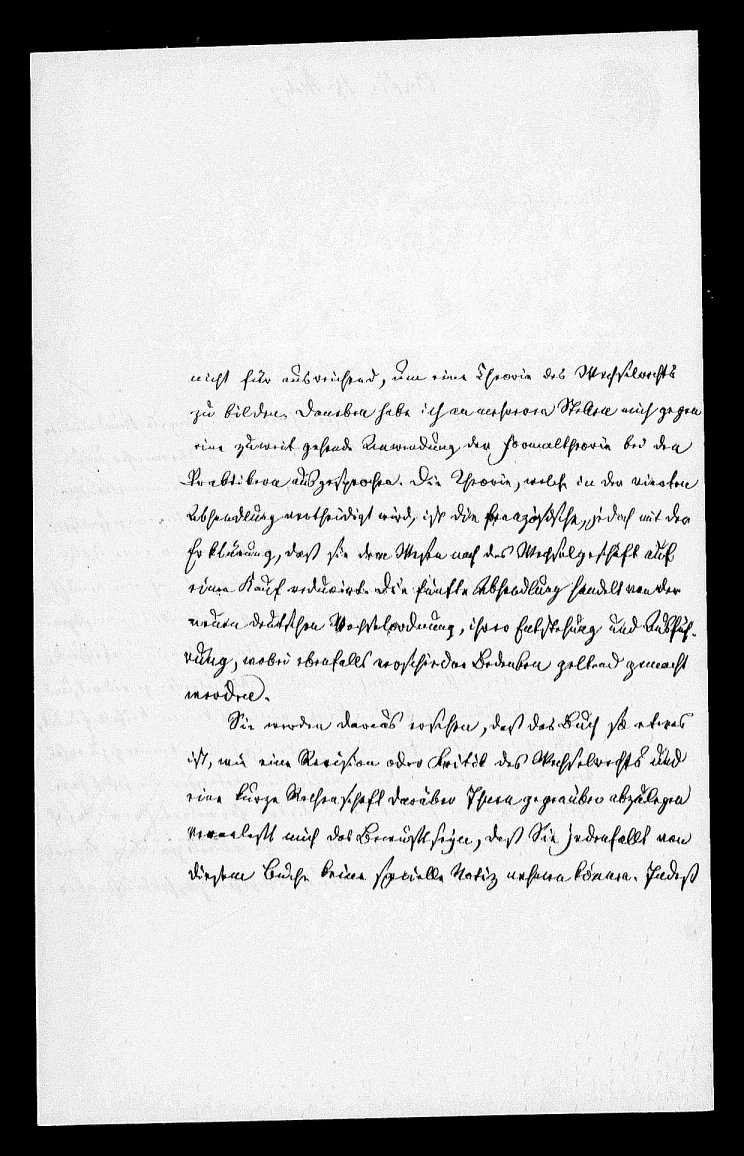 nicht für ausreichend, um eine Theorie des Wechselrechts
zu bilden. Daneben habe ich an mehreren Stellen mich gegen
eine zuweit gehende Anwendung der Formaltheorie bei den
Praktikern ausgesprochen. Die Theorie, welche in der vierten
Abhandlung vertheidigt wird, ist die französische, jedoch mit der
Erklärung, daß sie dem Wesen nach das Wechselgeschäft auf
einen Kauf reducirt. Die fünfte Abhandlung handelt von der
neuen deutschen Wechselordnung, ihrer Entstehung und Ausfüh-
rung, wobei ebenfalls verschiedene Bedenken geltend gemacht
werden.
Sie werden daraus ersehen, daß das Buch so etwas
ist, wie eine Revision oder Kritik des Wechselrechts und
eine kurze Rechenschaft darüber Ihnen gegenüber abzulegen
veranlaßt mich das Bewußtseyn, daß Sie jedenfalls von
diesem Buche keine specielle Notiz nehmen können. Indeß